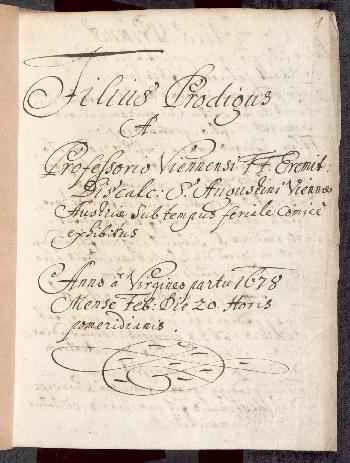 1
Filius Prodigus
A
Professorio Viennensi FF. Eremit:
Discalc: S. Augustini Viennæ
Austriæ sub tempus feriale Comicè
exhibitus
Anno à Virgineo partu 1678
Mense Feb. Die 20. Horis
pomeridianis.